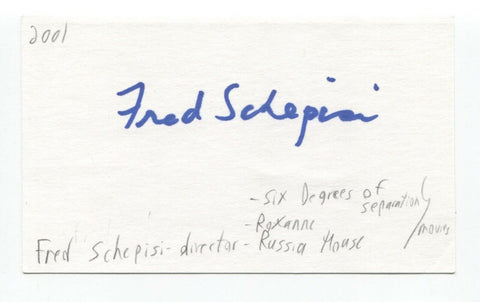 2001
Fred Schepisi
- Six Degrees of separation
- Roxanne
movies
Fred Schepisi - director - Russia House